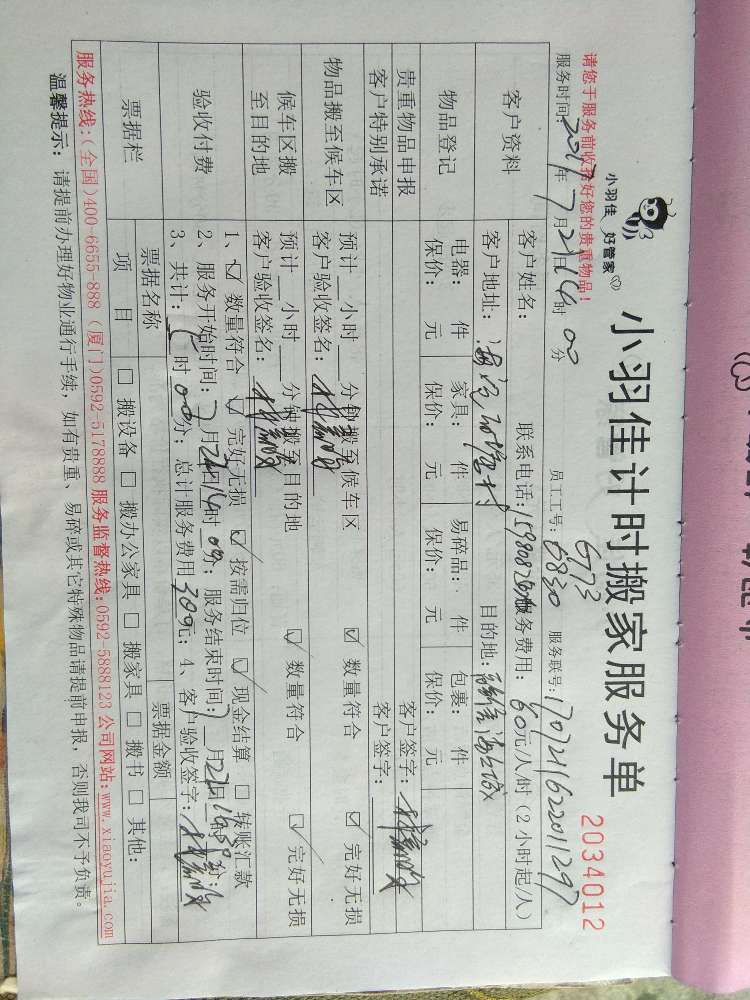 小羽佳 好管家
小羽佳计时搬家服务单
2034012
请您于服务前收拾好您的贵重物品!
员工工号: 6773 6830 服务联号:
服务时间: 2017年7月21日14时00分
客户资料
客户姓名: 联系电话: 服务费用: 60元/人/时(2小时起/人)
客户地址: 目的地:
物品登记
电器: 件 家具: 件 易碎品: 件 包裹: 件
保价: 元 保价: 元 保价: 元 保价: 元
贵重物品申报 客户签字:
客户特别承诺 客户签字:
物品搬至候车区
预计 小时 分钟搬至候车区 ☑ 数量符合 ☑ 完好无损
客户验收签名:
候车区搬至目的地
预计 小时 分钟搬至目的地 ☑ 数量符合 ☑ 完好无损
客户验收签名:
验收付费
1、☑ 数量符合 ☑ 完好无损 ☑ 按需归位 ☑ 现金结算 □ 转账汇款
2、服务开始时间: 7月21日14时00分; 服务结束时间: 7月21日 时 分;
3、共计: 时00分; 总计服务费用300元; 4、客户验收签字:
票据栏
票据名称 票据金额
项 目 □ 搬设备 □ 搬办公家具 □ 搬家具 □ 搬书 □ 其他:
服务热线:(全国)400-6655-888 (厦门)0592-5178888 服务监督热线:0592-5888123 公司网站:www.xiaoyujia.com
温馨提示: 请提前办理好物业通行手续, 如有贵重、易碎或其它特殊物品请提前申报, 否则我司不予负责。